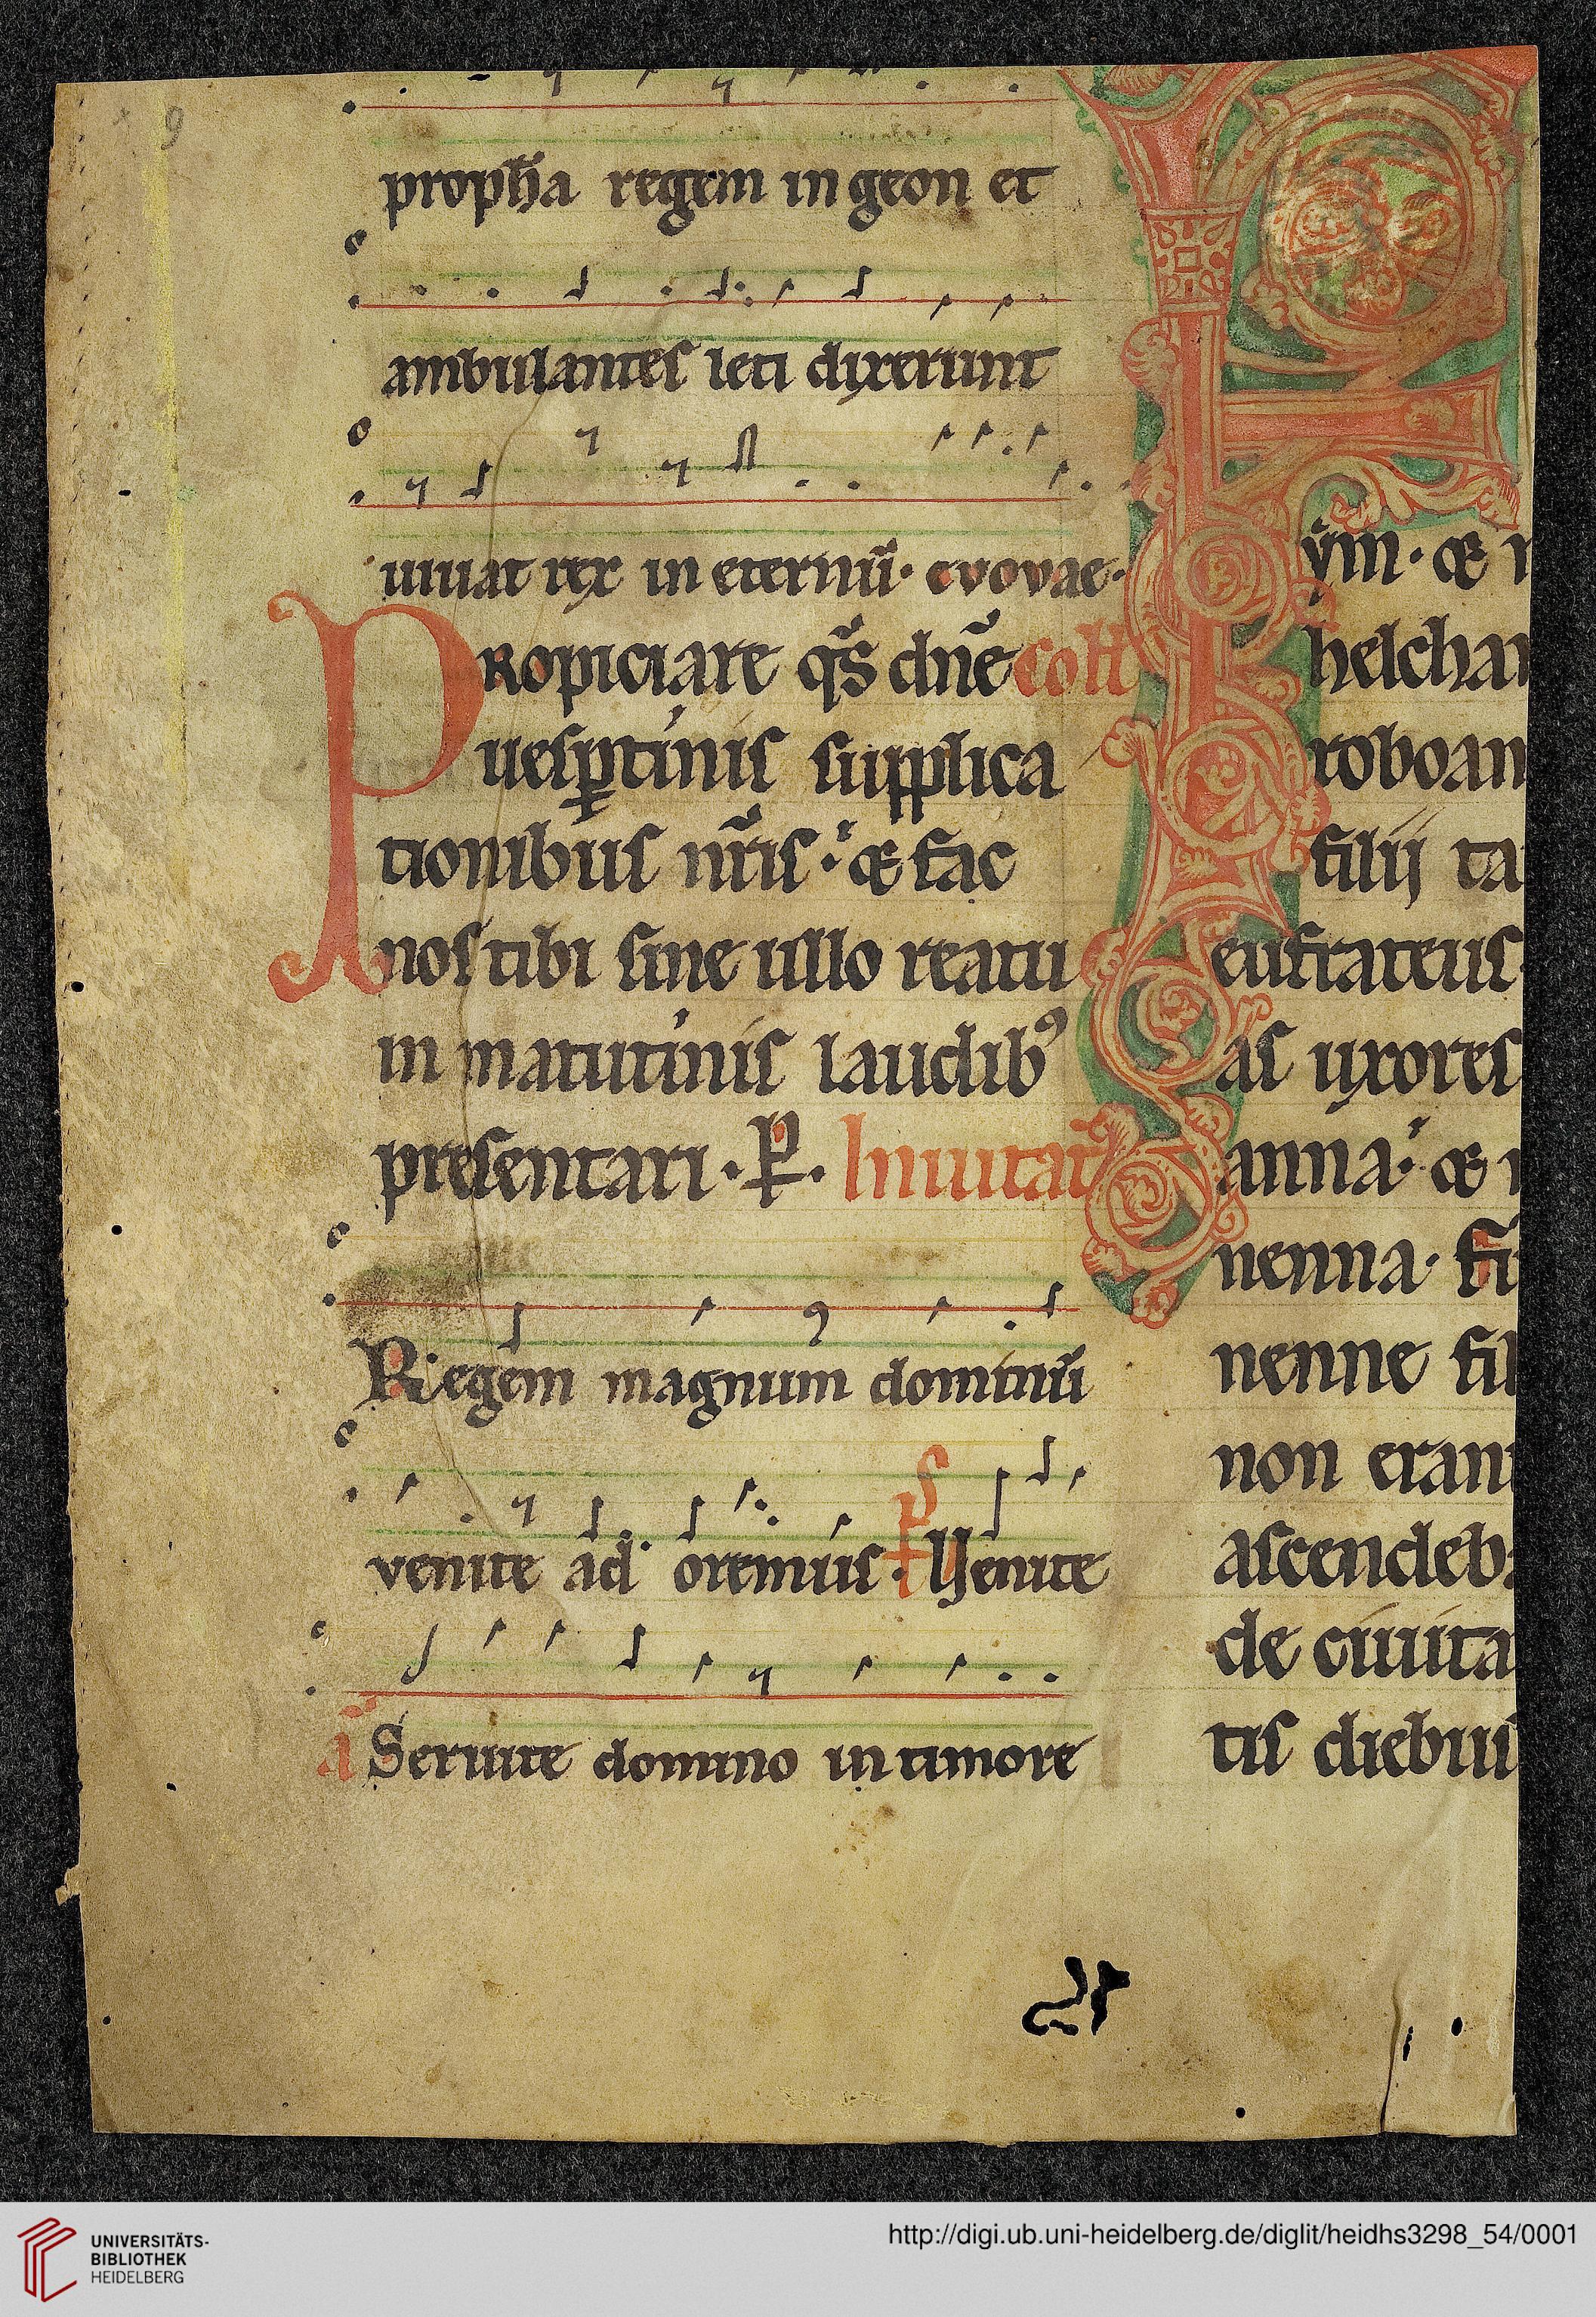 9
proph̄a regem in geon et
ambulantes leti dixerunt
uiuat rex in eternū· evovae·
Propiciare qs̄ dnē Coll
uesꝑtinis supplica
tionibus nr̄is· ⁊ fac
nos tibi sine ullo reatu
in matutinis laudibꝰ
presentari· P̲· Inuitat̄
Regem magnum dominū
venite adoremus· ps Venite
a᷒ Seruite domino in timore
ym· ⁊
helcha
roboam
filii ta
eufrateus·
as uxores
anna· ⁊
nenna·
nenne fil
non eran
ascendeb
de ciuita
tis diebus
UNIVERSITÄTS-
BIBLIOTHEK
HEIDELBERG
http://digi.ub.uni-heidelberg.de/diglit/heidhs3298_54/0001